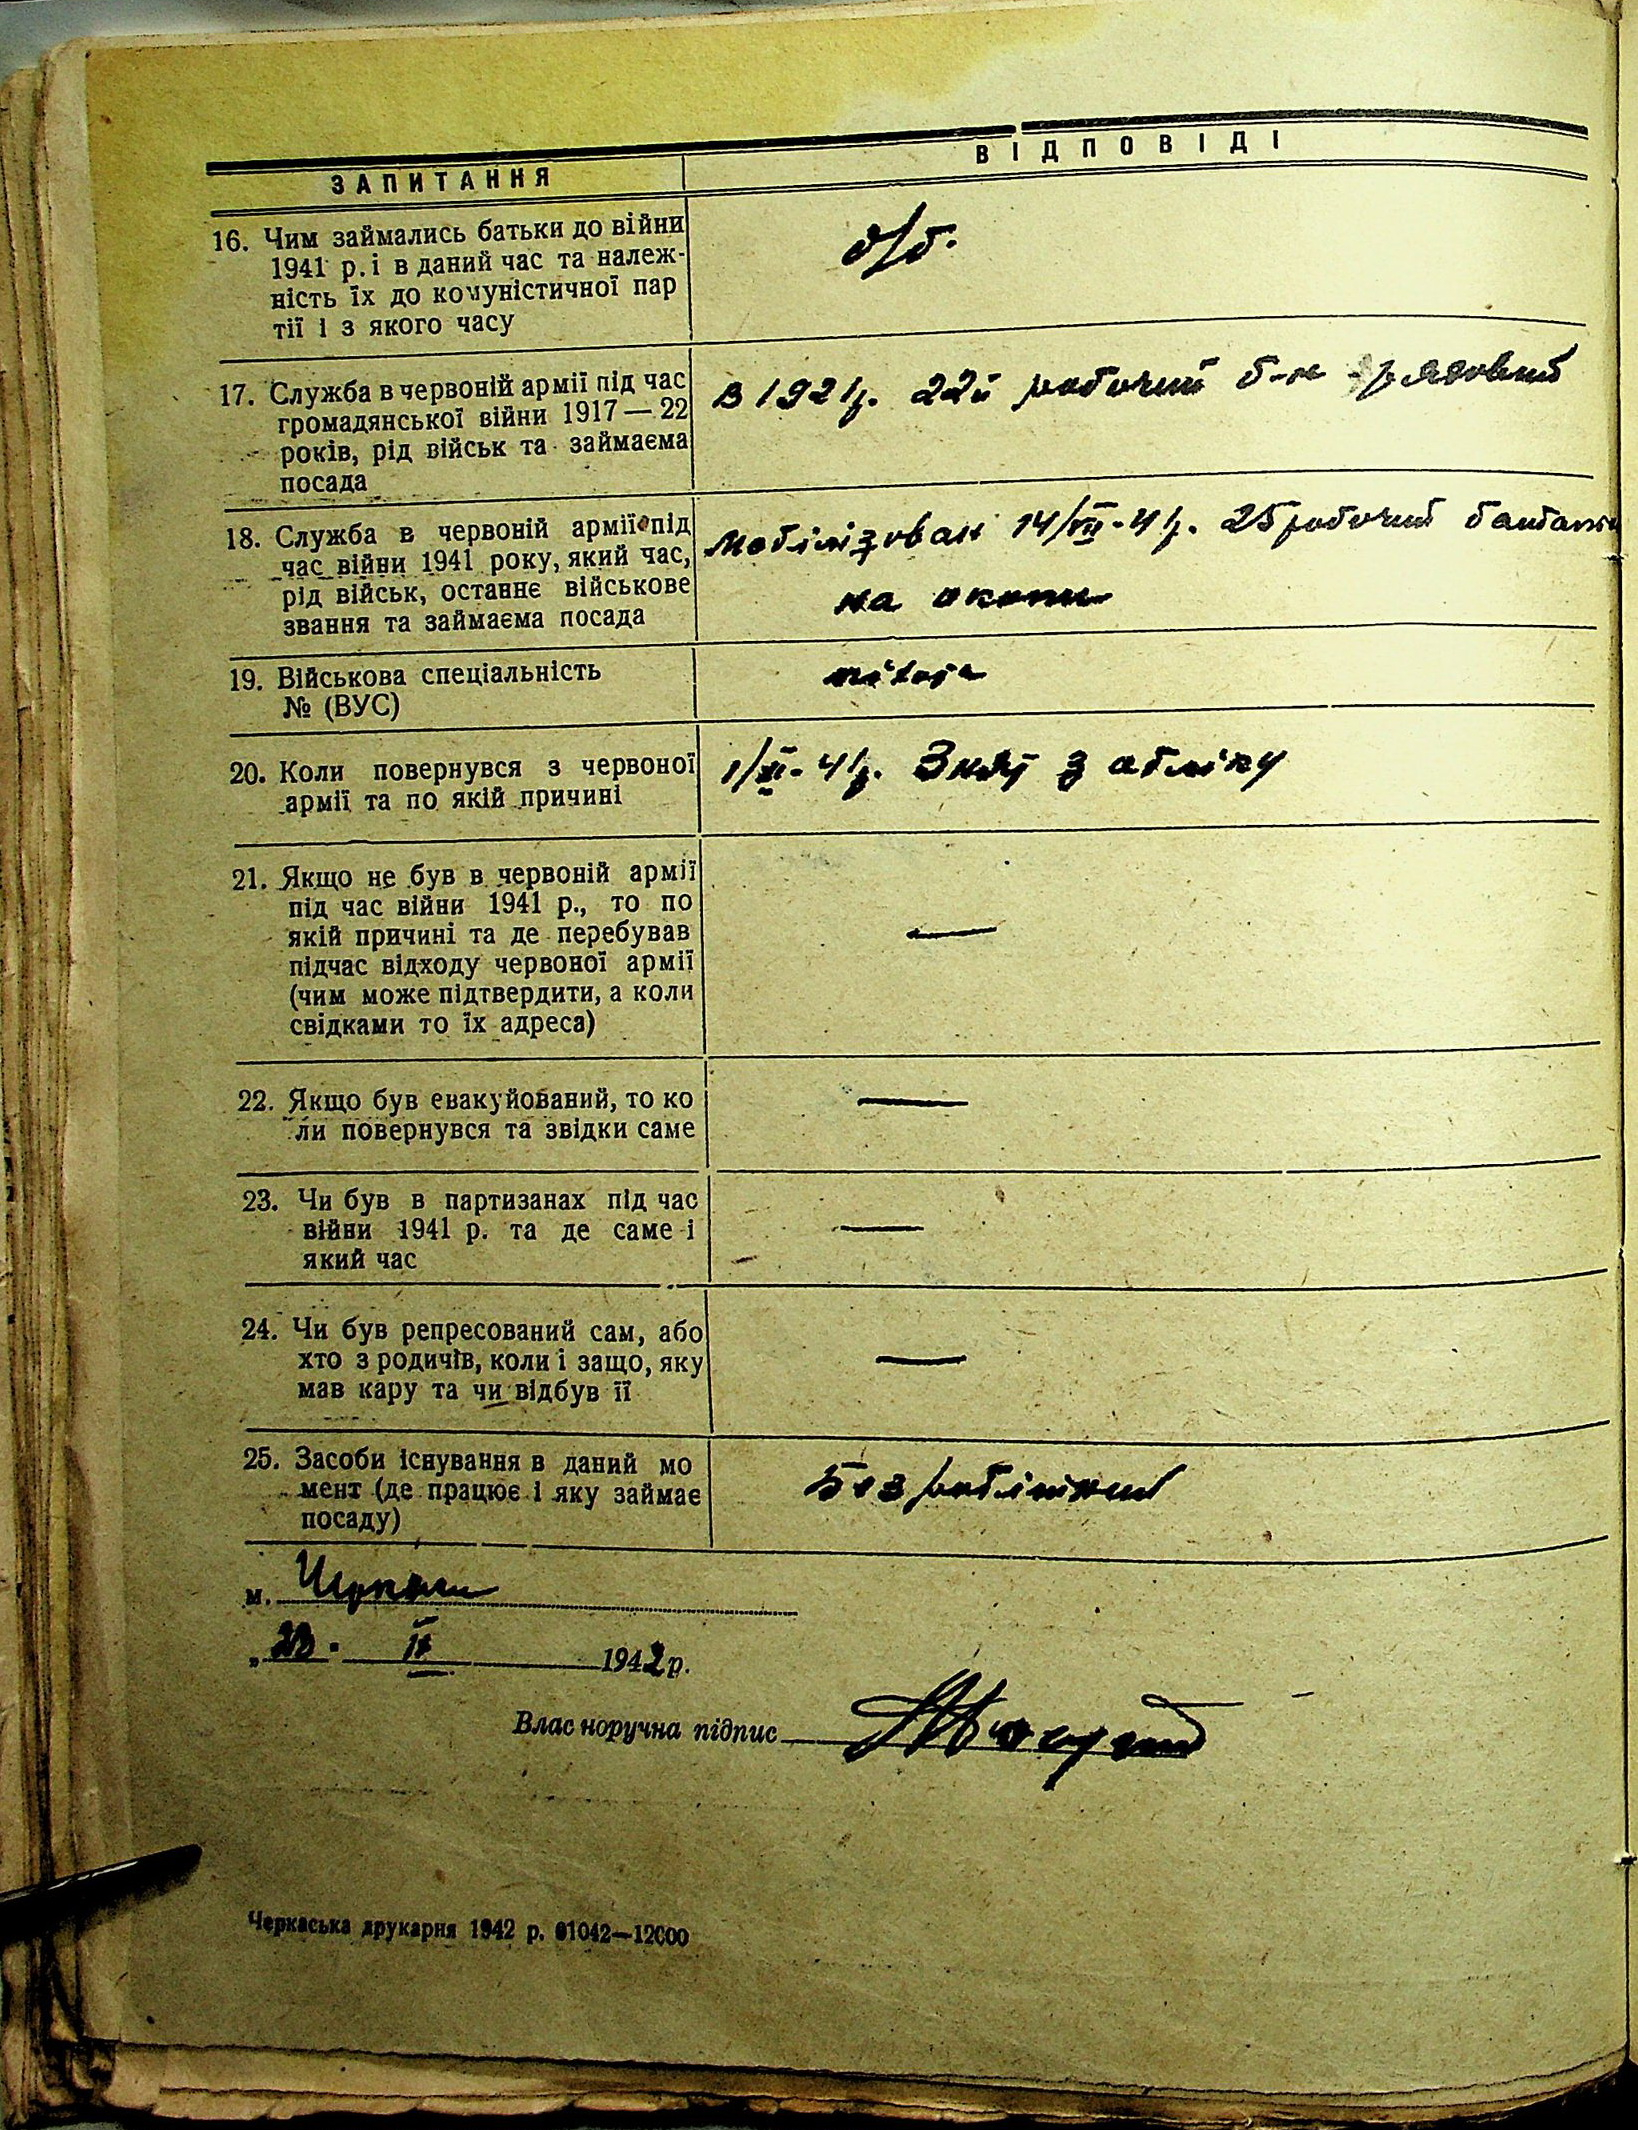 ЗАПИТАННЯ
ВІДПОВІДІ
16. Чим займались батьки до війни
1941 р. і в даний час та належ-
ність їх до комуністичної пар
тії і з якого часу
б/б.
17. Служба в червоній армії під час
громадянської війни 1917 — 22
років, рід військ та займаєма
посада
В 1921р. 22й робочий б-н рядовий
18. Служба в червоній армії під
час війни 1941 року, який час,
рід військ, останнє військове
звання та займаєма посада
Мобілізован 14/VII-41р. 25 робочий
на окопи
19. Військова спеціальність
№ (ВУС)
20. Коли повернувся з червоної
армії та по якій причині
1/XI-41р. Знят з обліку
21. Якщо не був в червоній армії
під час війни 1941 р., то по
якій причині та де перебував
підчас відходу червоної армії
(чим може підтвердити, а коли
свідками то їх адреса)
—
22. Якщо був евакуйований, то ко
ли повернувся та звідки саме
—
23. Чи був в партизанах під час
війни 1941 р. та де саме і
який час
—
24. Чи був репресований сам, або
хто з родичів, коли і защо, яку
мав кару та чи відбув її
—
25. Засоби існування в даний мо
мент (де працює і яку займає
посаду)
Безробітний
м. Черкаси
1942 р.
Власноручна підпис
Черкаська друкарня 1942 р. 01042—12000